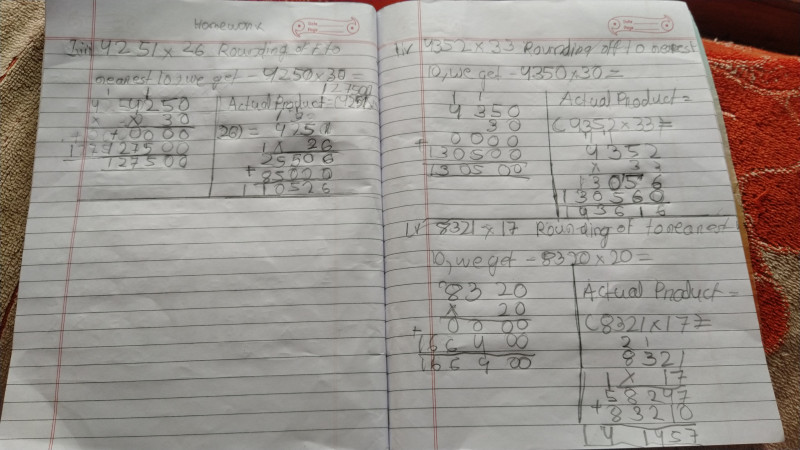 Homework
Date
Page
Iiii 4251 x 26 Rounding off to
nearest 10, we get - 4250 x 30 =
127500
4250
x 30
0000
+ 127500
127500
Actual Product = (4251x
26) = 4251
x 26
25506
+ 85020
110526
Date
Page
iv 4352 x 33 Rounding off to nearest
10, we get - 4350 x 30 =
4350
30
0000
+ 130500
130500
Actual Product =
(4352 x 33) =
4352
x 33
13056
130560
143616
Lv 8321 x 17 Rounding of to nearest
10, we get - 8320 x 20 =
8320
x 20
0000
+ 166400
166400
Actual Product =
(8321 x 17) =
2 1
8321
x 17
58247
+ 83210
141457